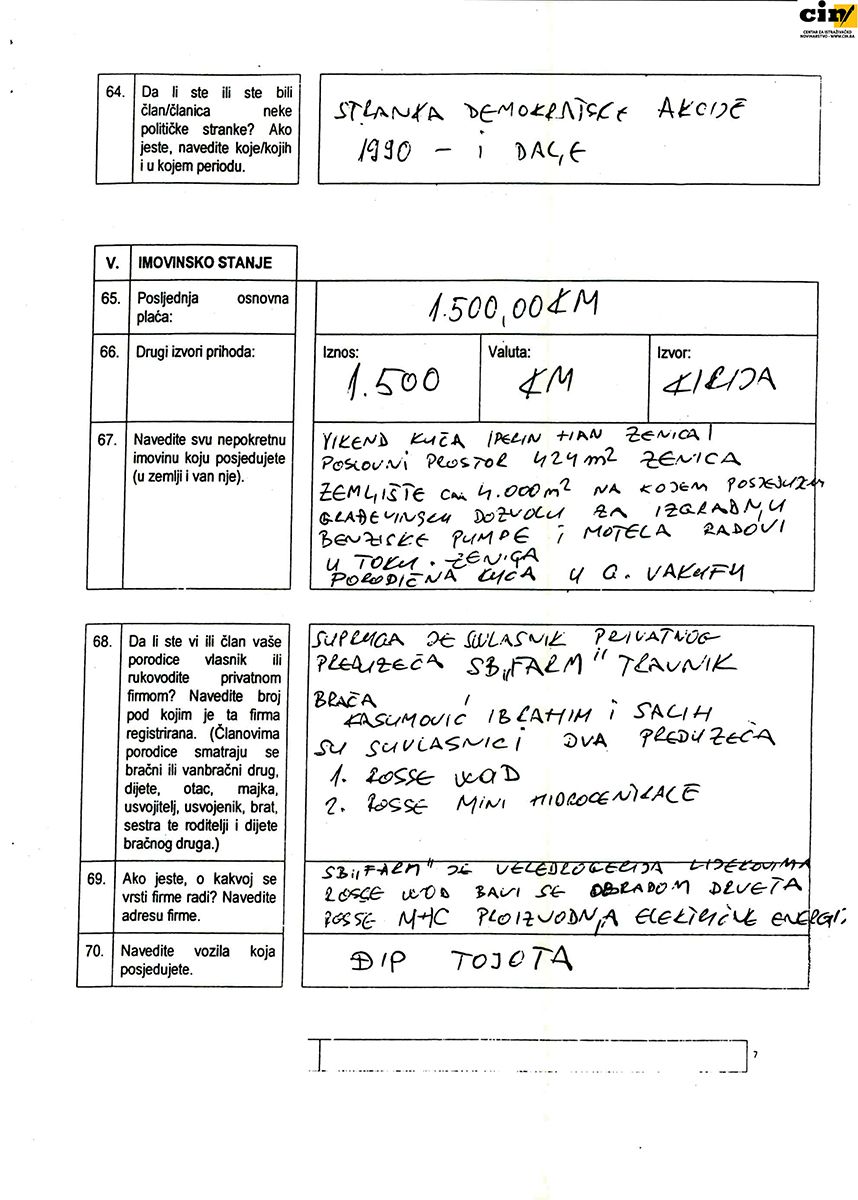 cin
CENTAR ZA ISTRAŽIVAČKO
NOVINARSTVO - WWW.CIN.BA
64. Da li ste ili ste bili
član/članica neke
političke stranke? Ako
jeste, navedite koje/kojih
i u kojem periodu.
STRANKA DEMOKRATSKE AKCIJE
1990 - i DALJE
V. IMOVINSKO STANJE
65. Posljednja osnovna
plaća:
1.500,00 KM
66. Drugi izvori prihoda:
Iznos: Valuta: Izvor:
1.500 KM KIRIJA
67. Navedite svu nepokretnu
imovinu koju posjedujete
(u zemlji i van nje).
VIKEND KUĆA /PERIN HAN ZENICA/
POSLOVNI PROSTOR 424 m² ZENICA
ZEMLJIŠTE ca 4.000 m² NA KOJEM POSJEDUJEM
GRAĐEVINSKU DOZVOLU ZA IZGRADNJU
BENZISKE PUMPE i MOTELA RADOVI
U TOKU. ZENICA
PORODIČNA KUĆA U G. VAKUFU
68. Da li ste vi ili član vaše
porodice vlasnik ili
rukovodite privatnom
firmom? Navedite broj
pod kojim je ta firma
registrirana. (Članovima
porodice smatraju se
bračni ili vanbračni drug,
dijete, otac, majka,
usvojitelj, usvojenik, brat,
sestra te roditelji i dijete
bračnog druga.)
SUPRUGA JE SUVLASNIK PRIVATNOG
PREDUZEĆA SB„FARM" TRAVNIK
BRAĆA
KASUMOVIĆ IBRAHIM i SALIH
SU SUVLASNICI DVA PREDUZEĆA
1. ROSSE WOD
2. ROSSE MINI HIDROCENTRALE
69. Ako jeste, o kakvoj se
vrsti firme radi? Navedite
adresu firme.
SB„FARM" JE VELEDROGERIJA LIJEKOVIMA
ROSSE WOD BAVI SE OBRADOM DRVETA
ROSSE MHC PROIZVODNJA ELEKTRIČNE ENERGIJ.
70. Navedite vozila koja
posjedujete.
ĐIP TOJOTA
7